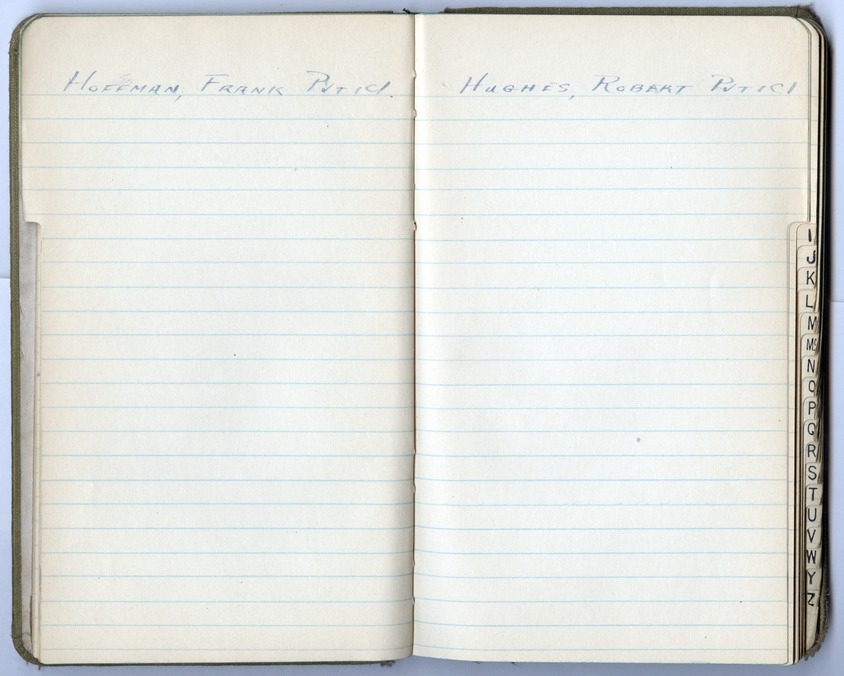 Hoffman, Frank Pvt 1Cl.
Hughes, Robert Pvt 1Cl
I
J
K
L
M
Mc
N
O
P
Q
R
S
T
U
V
W
Y
Z